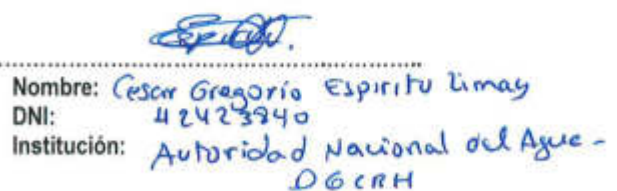 Nombre: Cesar Gregorio Espiritu Limay
DNI: 42423840
Institución: Autoridad Nacional del Agua -
DGCRH